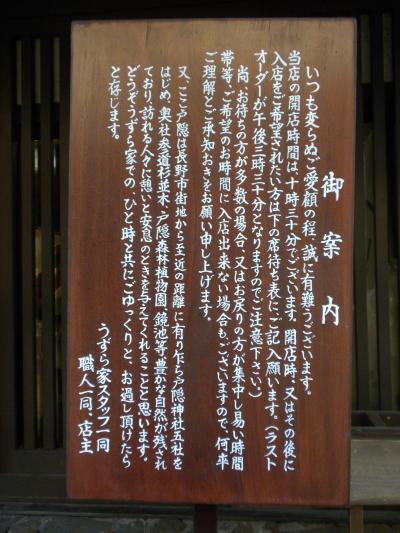 御案内
いつも変らぬご愛顧の程、誠に有難うございます。
当店の開店時間は、十時三十分でございます。開店時、又はその後に
入店をご希望されたい方は下の席待ち表に、ご記入願います。(ラスト
オーダーが午後三時三十分となりますのでご注意下さい。)
尚、お待ちの方が多数の場合、又はお戻りの方が集中し易い時間
帯等、ご希望のお時間に入店出来ない場合もございますので、何卒
ご理解とご承知おきをお願い申し上げます。
又、ここ戸隠は長野市街地から至近の距離に有り乍ら戸隠神社五社を
はじめ、奥社参道杉並木・戸隠森林植物園、鏡池等、豊かな自然が残され
ており、訪れる人々に憩いと安息のときを与えてくれることと思います。
どうぞうずら家での、ひと時と共にごゆっくりと、お過し頂けたら
と存じます。
うずら家スタッフ一同
職人一同、店主